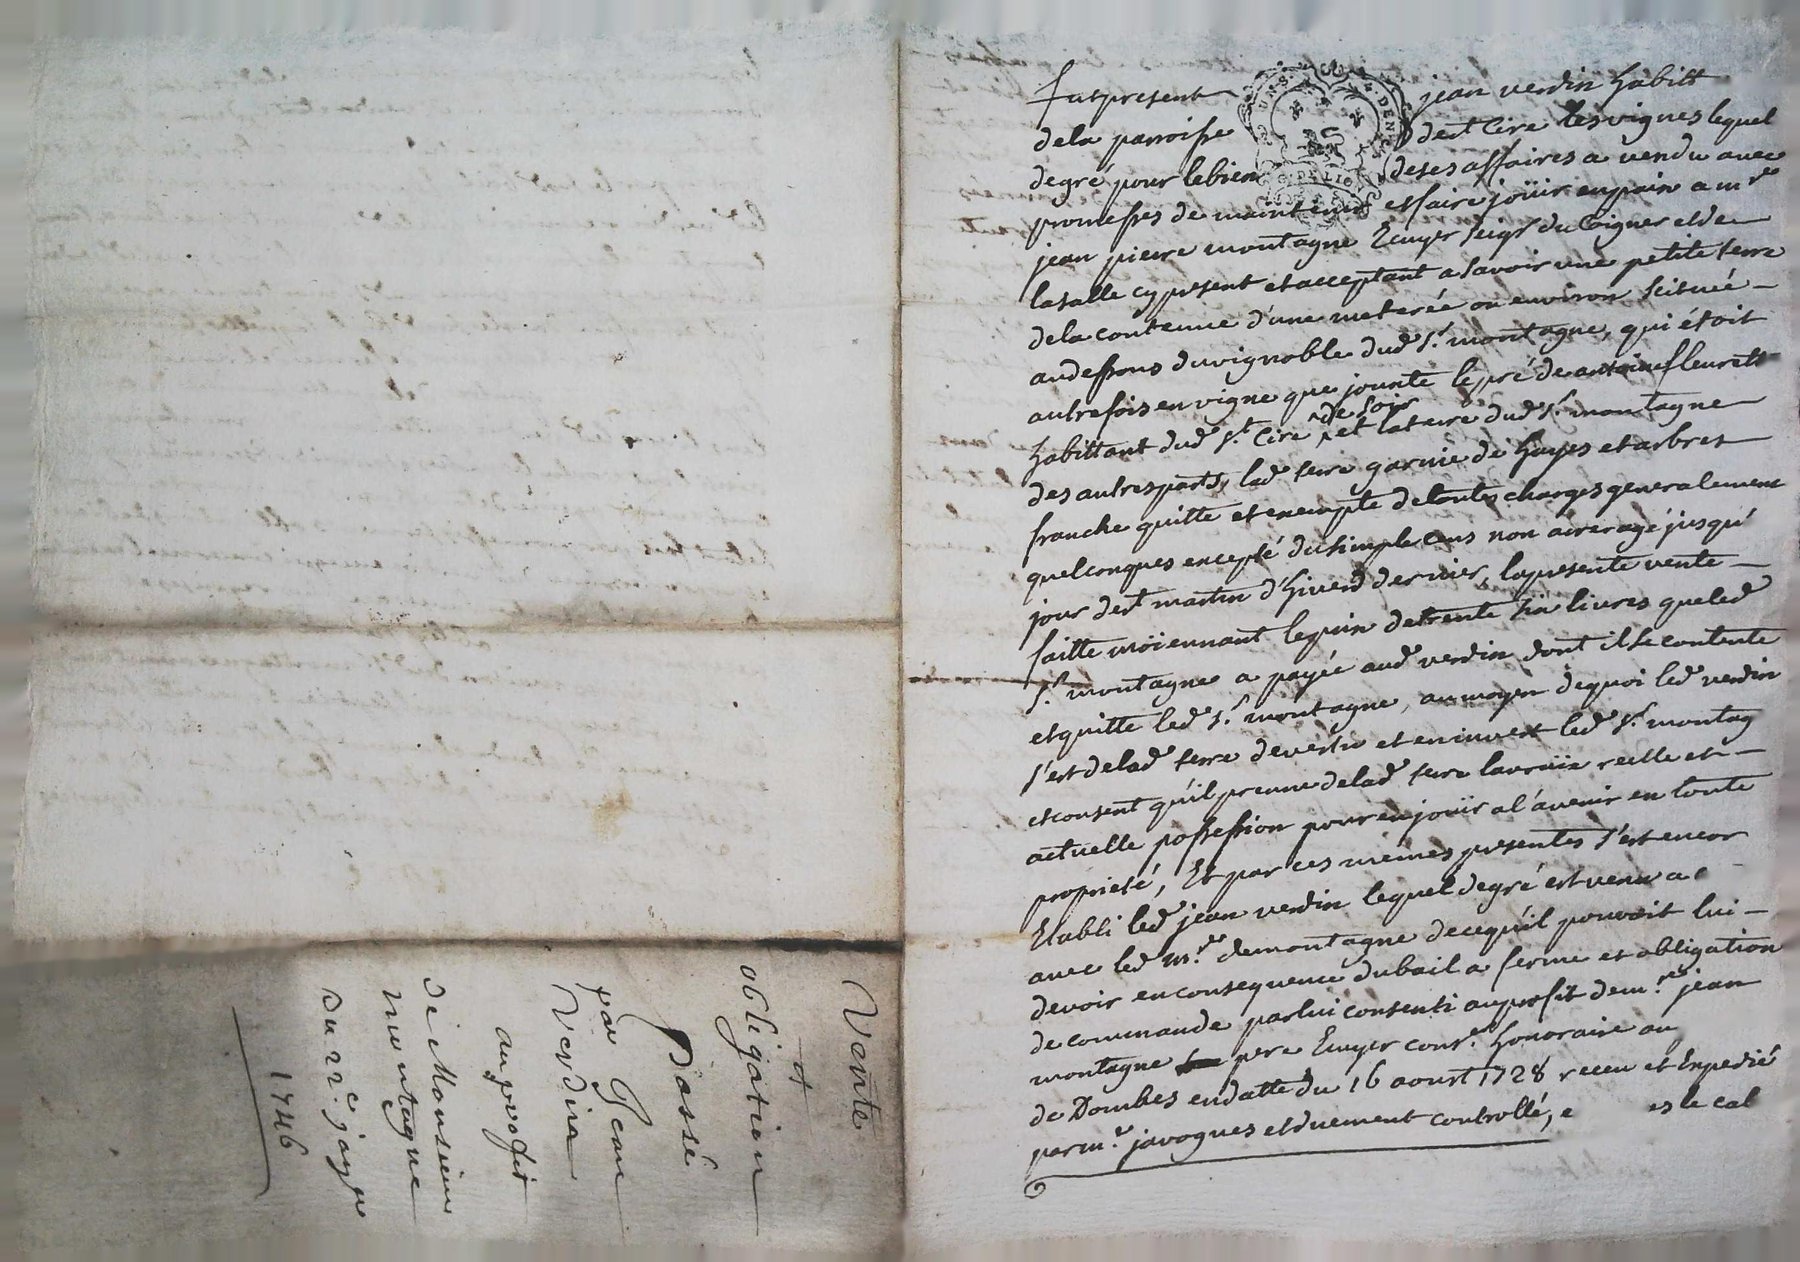 fut present jean verdin habitt
de la parroisse de st Cire les vignes lequel
de gré pour le bien de ses affaires a vendu avec
promesses de maintenir et faire joüir en paix a mre
jean pierre montagne Ecuyer seigr du Poignet et de
la salle cy present et acceptant a savoir une petite terre
de la contenue d'une meterée ou environ scituée
au dessous du vignoble dud sr montagne, qui étoit
autrefois en vigne que jouxte le pré de antoine fleurett
de soir
habittant dud st Cire et la terre dud sr montagne
des autres parts, lad terre garnie de hayes et arbres
franche quitte et exempte de toutes charges generalement
quelconques excepté du simple cens non arreragé jusqu'
jour de st martin d'hiverd dernier, la presente vente
faitte moiennant le prix de trente six livres que led
sr montagne a payée aud verdin dont il se contente
et quitte led sr montagne, au moyen de quoi led verdin
s'est de lad terre devestu et en invest led sr montag
et consent qu'il prenne de lad terre la vraïe reelle et
actuelle possession pour en joüir a l'avenir en toute
proprieté, Et par ces mêmes presentes s'est encor
Etabli led jean verdin lequel de gré est venu a c
avec led mr de montagne de ce qu'il pouvoit lui
devoir en consequence du bail a ferme et obligation
de commande par lui consenti au profit de mre jean
montagne pere Ecuyer consr honoraire au
de Dombes en datte du 16 aoust 1728 receu et Expedié
par mr javogues et duement controllé, e es le cal
Vente
et
obligation
Passé
par Jean
Verdin
au profit
de Monsieur
montagne
Du 22e janv
1746